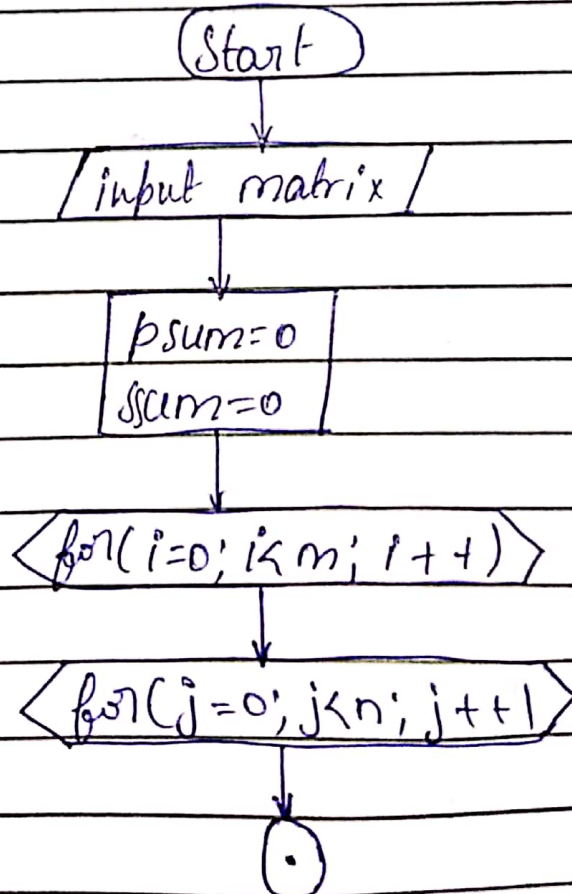 Start
input matrix
psum=0
ssum=0
for(i=0; i<m; i++)
for(j=0; j<n; j++)